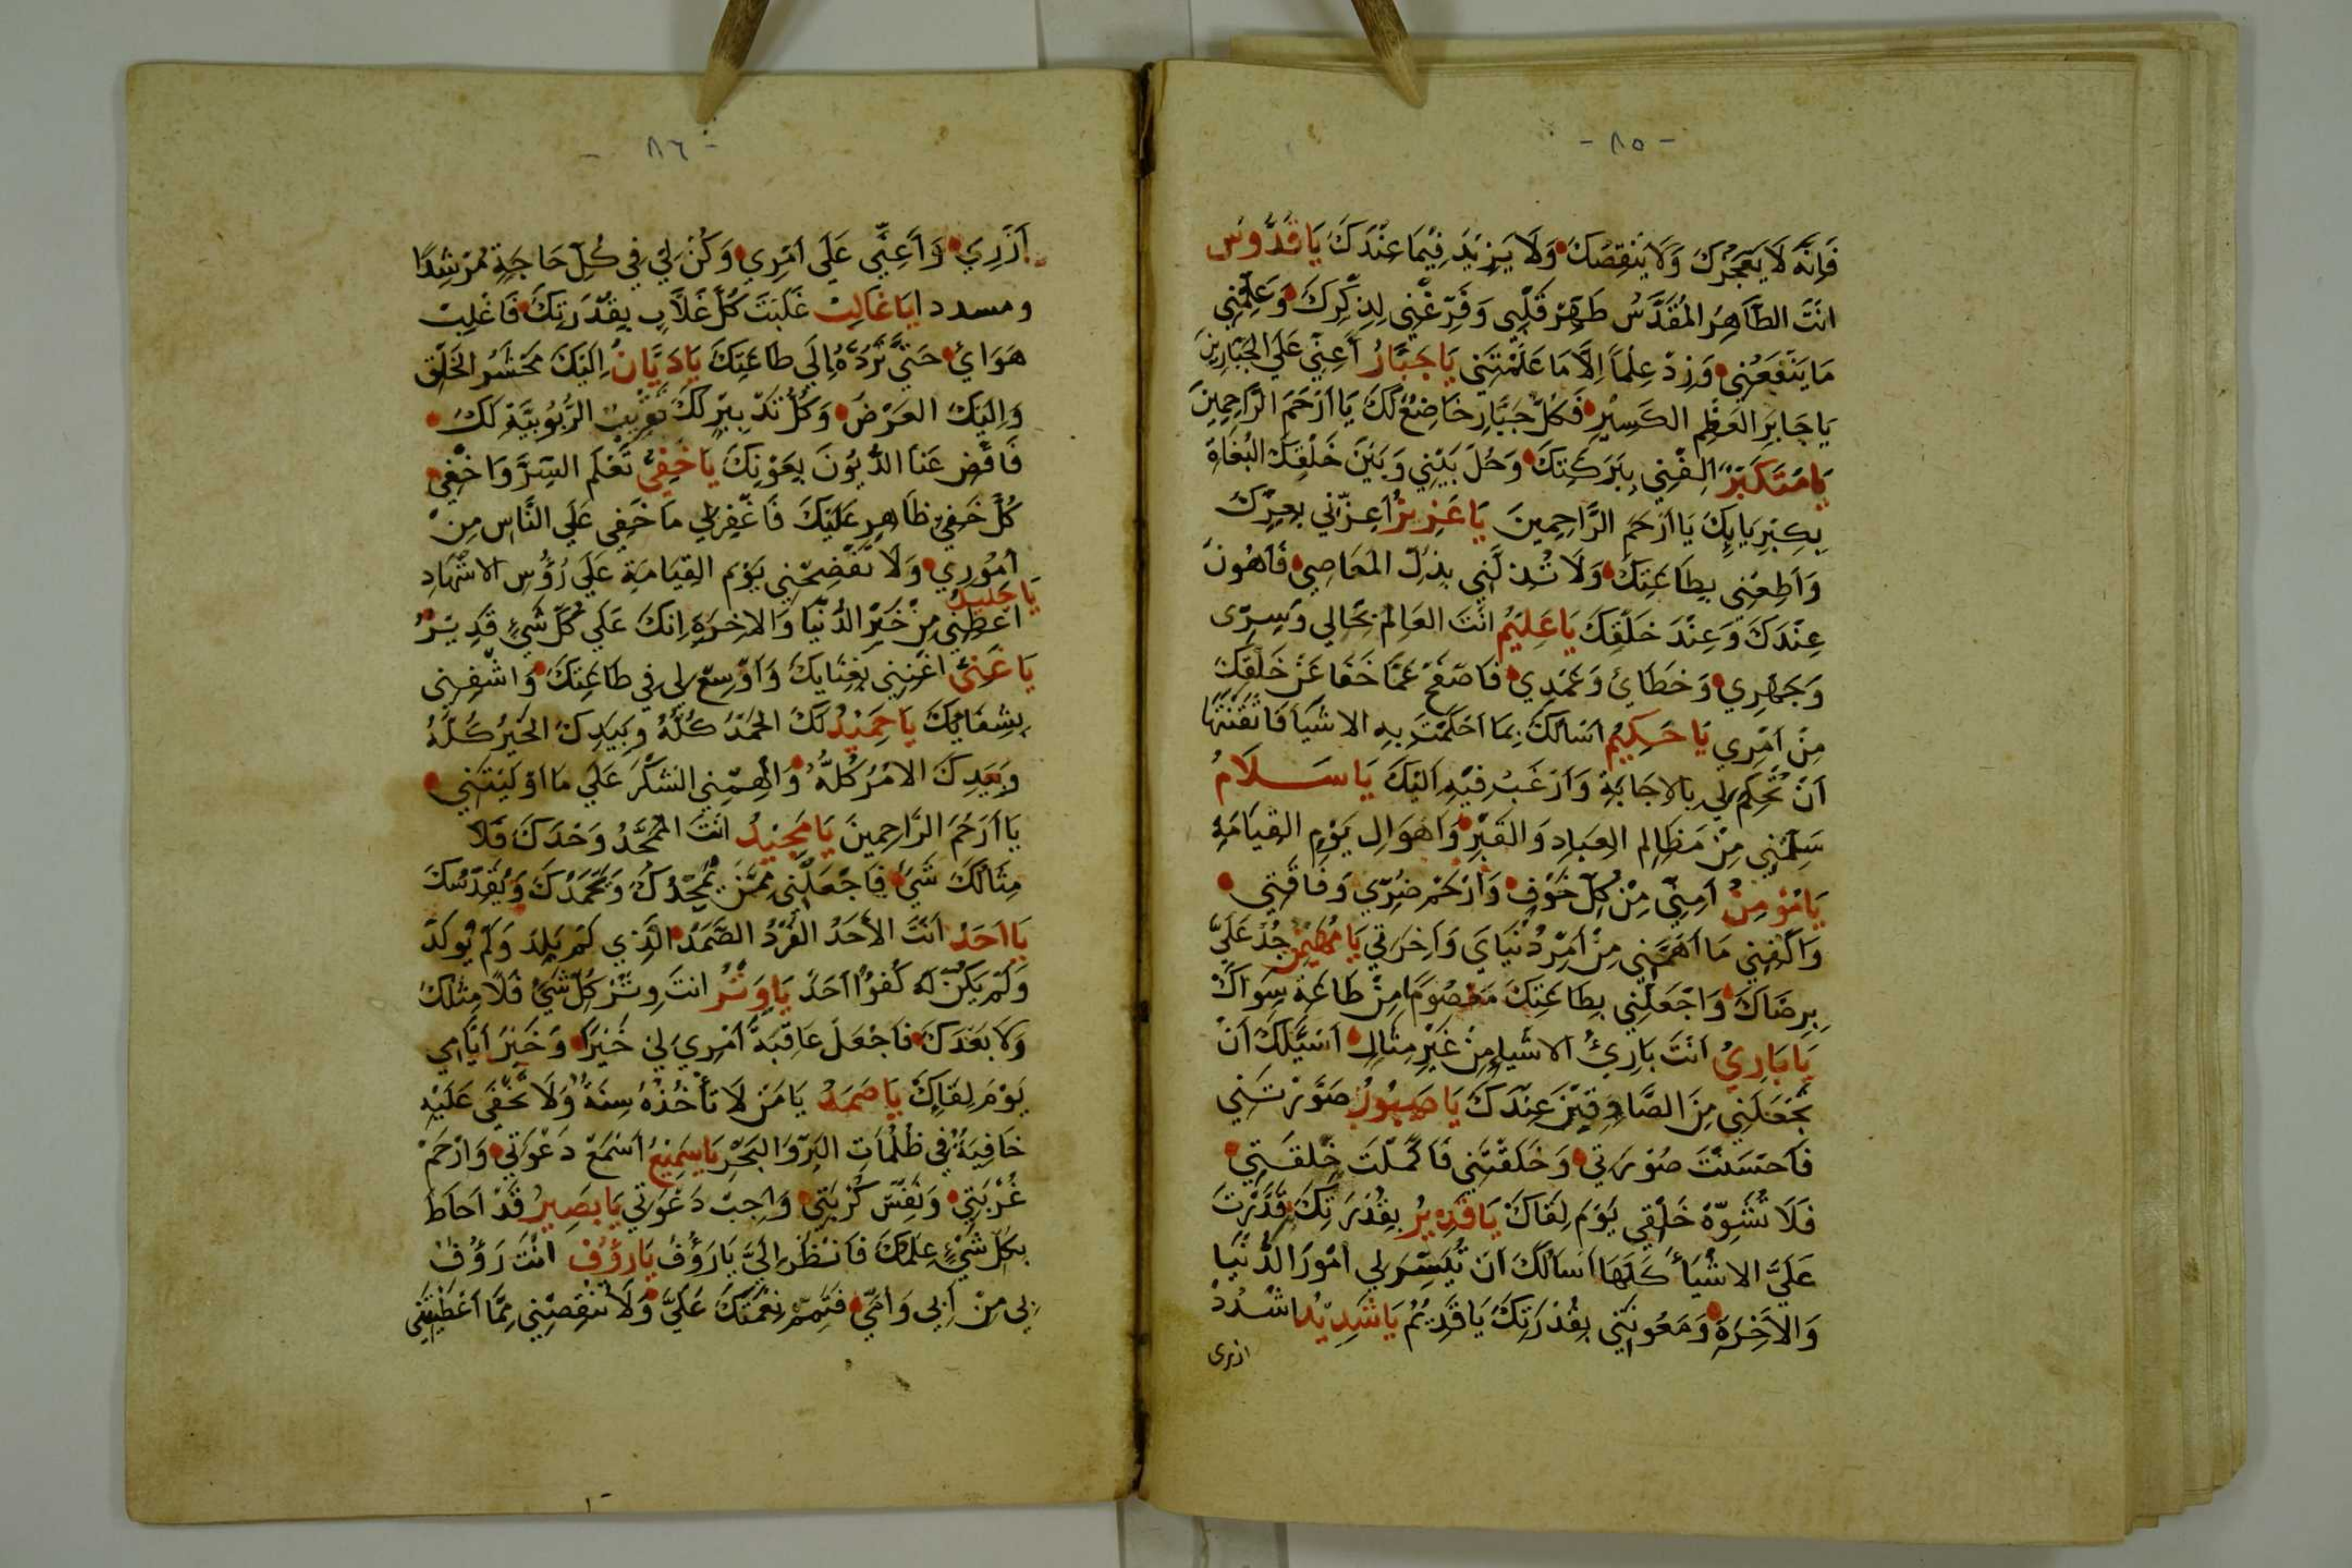 - ٨٥ -
فَإِنَّهُ لَا يُعْجِزُكَ وَلَا يَنْقِصُكَ وَلَا يَزِيدُ فِيمَا عِنْدَكَ يَا قُدُّوسُ
اَنْتَ الطَّاهِرُ الْمُقَدَّسُ طَهِّرْ قَلْبِي وَفَرِّغْنِي لِذِكْرِكَ وَعَلِّمْنِي
مَا يَنْفَعُنِي وَزِدْ عِلْماً اِلَّا مَا عَلَّمْتَنِي يَا جَبَّارُ أَعِنِّي عَلَى الجَبَّارِينَ
يَا جَابِرَ العَظْمِ الكَسِيْرِ فَكُلُّ جَبَّارٍ خَاضِعٌ لَكَ يَا أَرْحَمَ الرَّاحِمِينَ
يَا مُتَكَبِّرُ الفني بِبَرَكَتِكَ وَحُلْ بَيْنِي وَبَيْنَ خَلْقِكَ البُغَاةَ
بِكِبْرِيَايِكَ يَا أَرْحَمَ الرَّاحِمِينَ يَا عَزِيزُ أَعِزَّنِي بِعِزِّكَ
وَأَطِعْنِي بِطَاعَتِكَ وَلَا تُذِلَّنِي بِذُلِّ المَعَاصِي فَأَهُونُ
عِنْدَكَ وَعِنْدَ خَلْقِكَ يَا عَلِيمُ اَنْتَ العَالِمُ بِحَالِي وَسِرِّى
وَجَهْرِي وَخَطَائِ وَعَمْدِي فَاصْفَحْ عَمَّا خَفَا عَنْ خَلْقِكَ
مِنْ أَمْرِي يَا حَكِيمُ اَسْالُكَ بِمَا أَحْكَمْتَ بِهِ الاشْيَا فَاتْقَنْتَهَا
اَنْ تُحْكِمَ لِي بِالاجَابَةِ وَأَرْغَبُ فِيْهِ اِلَيْكَ يَا سَلَامُ
سَلِّمْنِي مِنْ مَظَالِمِ العِبَادِ وَالقَبْرِ وَاَهْوَالِ يَوْمِ القِيَامَةِ
يَا مُؤْمِنُ أَمِنِّي مِنْ كُلِّ خَوْفٍ وَارْحَمْ ضُرِّي وَفَاقَتِي
وَاكْفِنِي مَا أَهَمَّنِي مِنْ أَمْرِ دُنْيَايَ وَآخِرَتِي يَا مُهَيْمِنُ جُدْ عَلَيَّ
بِرِضَاكَ وَاجْعَلْنِي بِطَاعَتِكَ مَعْصُومًا مِنْ طَاعَةِ سِوَاكَ
يَا بَارِئُ اَنْتَ بَارِئُ الاشْيَاءِ مِنْ غَيْرِ مِثَالٍ اَسْئَلُكَ اَنْ
تَجْعَلَنِي مِنَ الصَّادِقِيْنَ عِنْدَكَ يَا صَبُورُ صَوَّرْتَنِي
فَاَحْسَنْتَ صُوْرَتِي وَخَلَقْتَنِي فَاكْمَلْتَ خِلْقَتِي
فَلَا تُشَوِّهْ خَلْقِي يَوْمَ لِقَاكَ يَا قَدِيرُ بِقُدْرَتِكَ قَدَّرْتَ
عَلَيَّ الاشْيَاءَ كُلَّهَا اَسْالُكَ اَنْ تُيَسِّرَ لِي اُمُوْرَ الدُّنْيَا
وَالاَخِرَةِ وَمَعُونَتِي بِقُدْرَتِكَ يَا قَدِيمُ يَا شَدِيْدُ اشْدُدْ
ازرى
- ٨٦ -
أَزْرِي وَأَعِنِّي عَلَى اَمْرِي وَكُنْ لِي فِي كُلِّ حَاجَةٍ مُرْشِدًا
ومسددا يَا غَالِبُ غَلَبْتَ كُلَّ غَلَّابٍ بِقُدْرَتِكَ فَاغْلِبْ
هَوَايَ حَتَّى تَرُدَّهُ اِلَى طَاعَتِكَ يَا دَيَّانُ اِلَيْكَ مَحْشَرُ الخَلْقِ
وَاِلَيْكَ العَرْضُ وَكُلٌّ الرُّبُوبِيَّةِ لَكَ
فَاقْضِ عَنَّا الدُّيُونَ بِعَوْنِكَ يَا خَفِيُّ تَعْلَمُ السِّرَّ وَاخْفِي
كُلُّ خَفِيٍّ ظَاهِرٌ عَلَيْكَ فَاغْفِرْ لِي مَا خَفِي عَلَى النَّاسِ مِنْ
اُمُوْرِي وَلَا تَفْضَحْنِي يَوْمَ القِيَامَةِ عَلَى رُؤُسِ الاشْهَادِ
يَا جَلِيلُ
اعْطِنِي مِنْ خَيْرِ الدُّنْيَا وَالاخِرَةِ اِنَّكَ عَلَى كُلِّ شَيْءٍ قَدِيْرٌ
يَا غَنِيُّ اغْنِنِي بِغِنَايِكَ وَأَوْسِعْ لِي فِي طَاعَتِكَ وَاشْفِنِي
بِشِفَائِكَ يَا حَمِيْدُ لَكَ الحَمْدُ كُلُّهُ وَبِيَدِكَ الخَيْرُ كُلُّهُ
وَبِيَدِكَ الامْرُ كُلُّهُ وَالْهِمْنِي الشُّكْرَ عَلَى مَا اَوْلَيْتَنِي
يَا اَرْحَمَ الرَّاحِمِينَ يَا مَجِيْدُ اَنْتَ المُمَجَّدُ وَحْدَكَ فَلَا
مِثَالَكَ شَيْءٌ فَاجْعَلْنِي مِمَّنْ يُمَجِّدُكَ وَيَحْمَدُكَ وَيُقَدِّسُكَ
يَا اَحَدُ اَنْتَ الأَحَدُ الفَرْدُ الصَّمَدُ الَّذِي لَمْ يَلِدْ وَلَمْ يُولَدْ
وَلَمْ يَكُنْ لَهُ كُفُوًا اَحَدٌ يَا وَتْرُ اَنْتَ وِتْرُ كُلِّ شَيْءٍ فَلَا مِثْلَكَ
وَلَا بَعْدَكَ فَاجْعَلْ عَاقِبَةَ اَمْرِي لِي خَيْرًا وَخَيْرَ اَيَّامِي
يَوْمَ لِقَائِكَ يَا صَمَدُ يَا مَنْ لَا تَأْخُذُهُ سِنَةٌ وَلَا تَخْفَى عَلَيْهِ
خَافِيَةٌ فِي ظُلُمَاتِ البَرِّ وَالبَحْرِ يَا سَمِيْعُ اسْمَعْ دَعْوَتِي وَارْحَمْ
غُرْبَتِي وَنَفِّسْ كُرْبَتِي وَاَجِبْ دَعْوَتِي يَا بَصِيرُ قَدْ اَحَاطَ
بِكُلِّ شَيْءٍ عِلْمُكَ فَانْظُرْ اِلَيَّ يَا رَؤُفُ يَا رَؤُفُ اَنْتَ رَؤُفٌ
بِي مِنْ اَبِي وَاُمِّي فَتَمِّمْ نِعْمَتَكَ عَلَيَّ وَلَا تُنْقِصْنِي مِمَّا اَعْطَيْتَنِي